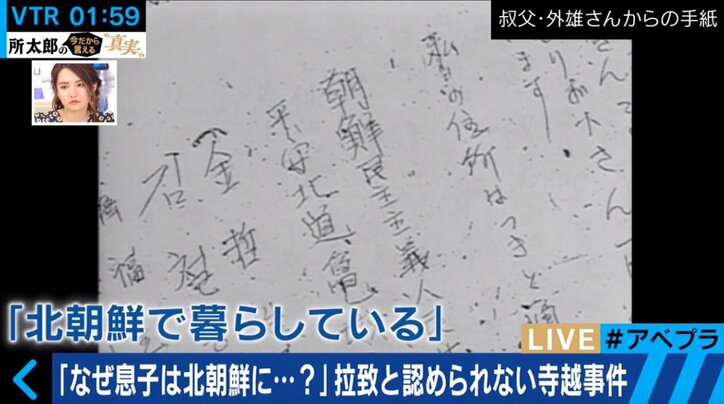 VTR 01:59
所太郎の
今だから
言える
"真実"
叔父・外雄さんからの手紙
ます
私の住所はつぎと
朝鮮民主主義人
平安北道亀
金哲
「北朝鮮で暮らしている」
LIVE
#アベプラ
「なぜ息子は北朝鮮に…?」拉致と認められない寺越事件